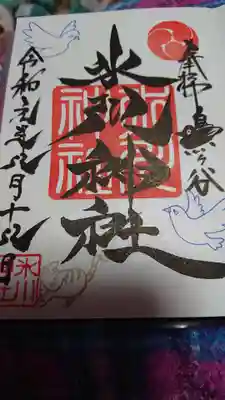 奉拝 鳩ヶ谷
氷川神社
氷川
神社
令和元年九月十九日
氷川